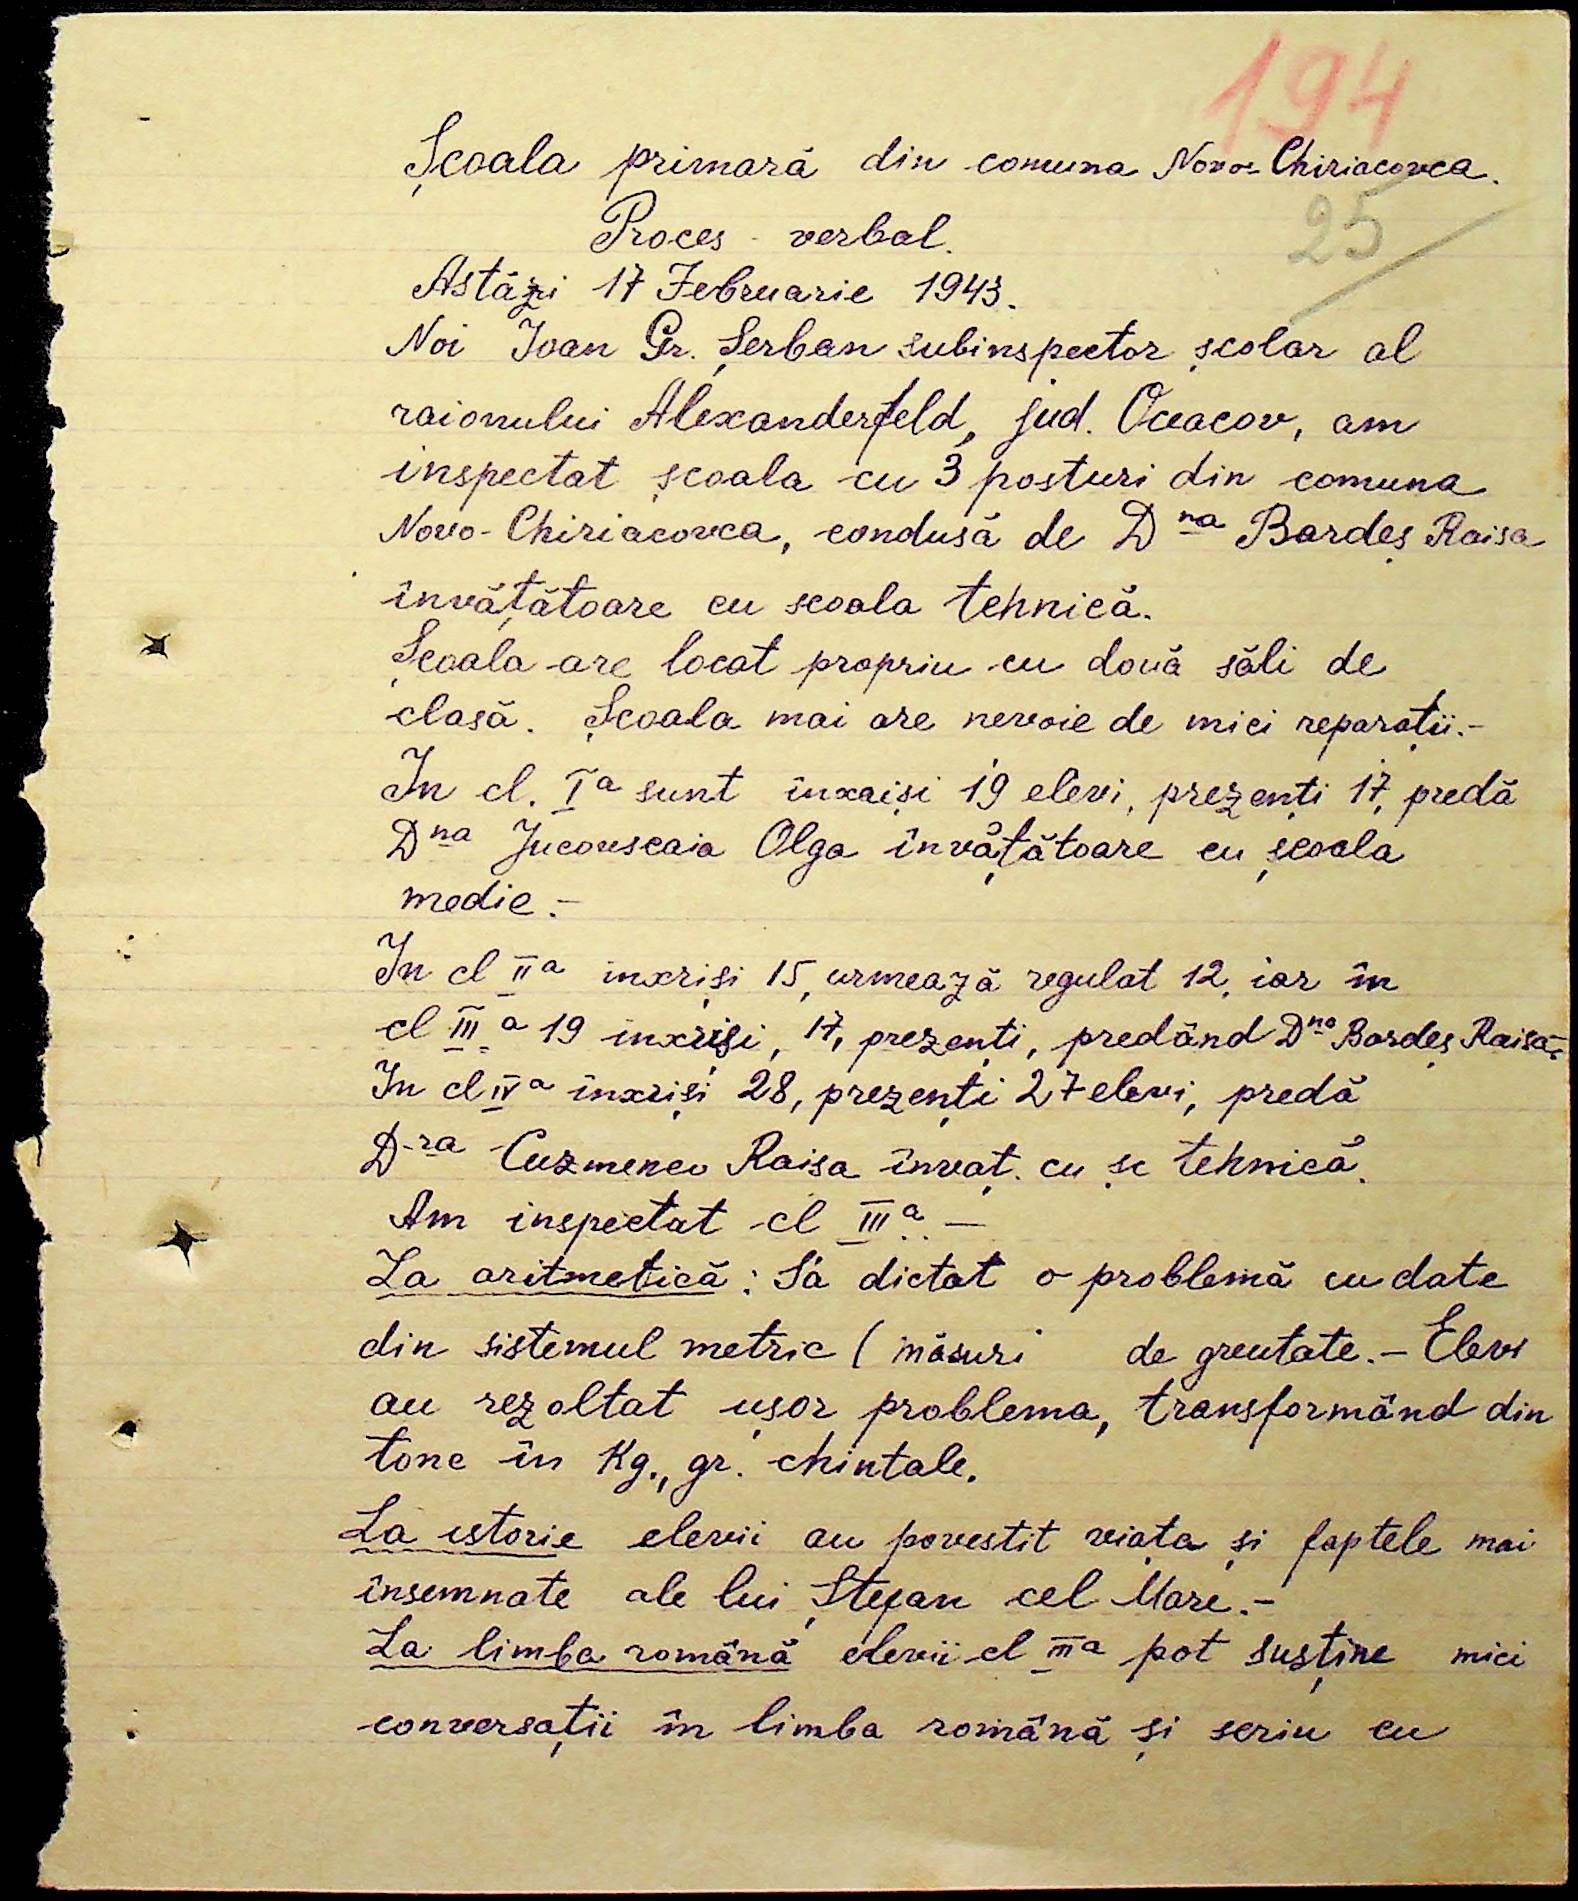 194
Școala primară din comuna Novo-Chiriacovca.
25
Proces-verbal.
Astăzi 17 Februarie 1943.
Noi Ioan Gr. Șerban subinspector școlar al
raionului Alexanderfeld, jud. Oceacov, am
inspectat școala cu 3 posturi din comuna
Novo-Chiriacovca, condusă de Dna Bardeș Raisa
învățătoare cu scoala tehnică.
Școala are local propriu cu două săli de
clasă. Școala mai are nevoie de mici reparații.-
In cl. Ia sunt înxriși 19 elevi, prezenți 17, predă
Dna Jucovscaia Olga învățătoare cu școala
medie.-
In cl IIa inxriși 15, urmează regulat 12, iar în
cl IIIa 19 inxriși, 17, prezenți, predând Dna Bardeș Raisa-
In cl IVa înxriși 28, prezenți 27 elevi, predă
D-ra Cuzmenco Raisa învaț. cu șc tehnică.
Am inspectat cl IIIa. —
La aritmetică: S'a dictat o problemă cu date
din sistemul metric (măsuri de greutate.- Elevi
au rezoltat ușor problema, transformând din
tone în Kg., gr. chintale.
La istorie elevii au povestit viața și faptele mai
însemnate ale lui Ștefan cel Mare.-
La limba română elevii cl IIIa pot susține mici
conversații în limba română și scriu cu